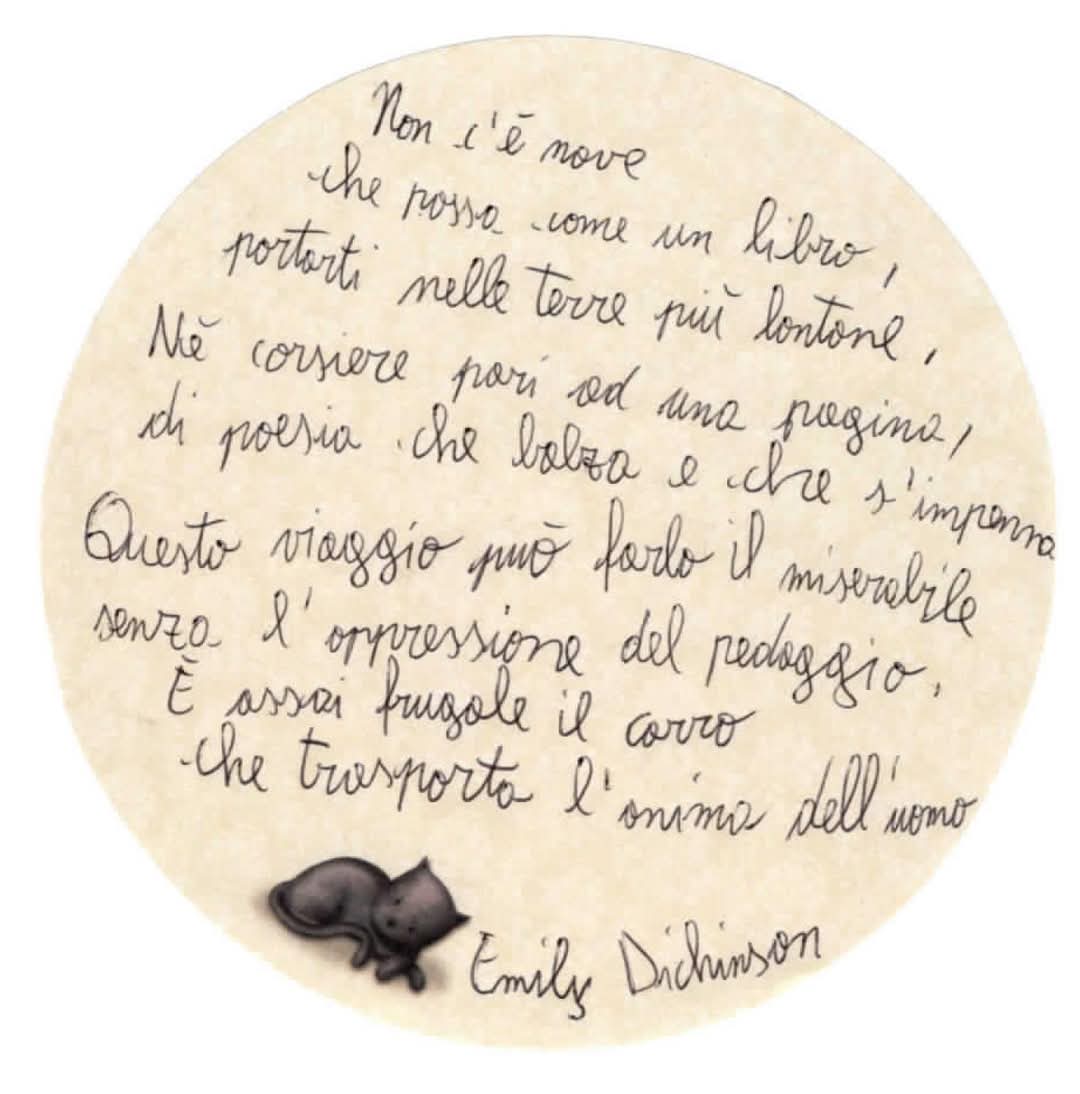 Non c'è nave
che possa come un libro,
portarti nelle terre più lontane,
Nè corsiere pari ad una pagina,
di poesia che balza e che s'impenna
Questo viaggio può farlo il miserabile
senza l'oppressione del pedaggio,
È assai frugale il carro
che trasporta l'anima dell'uomo
Emily Dickinson